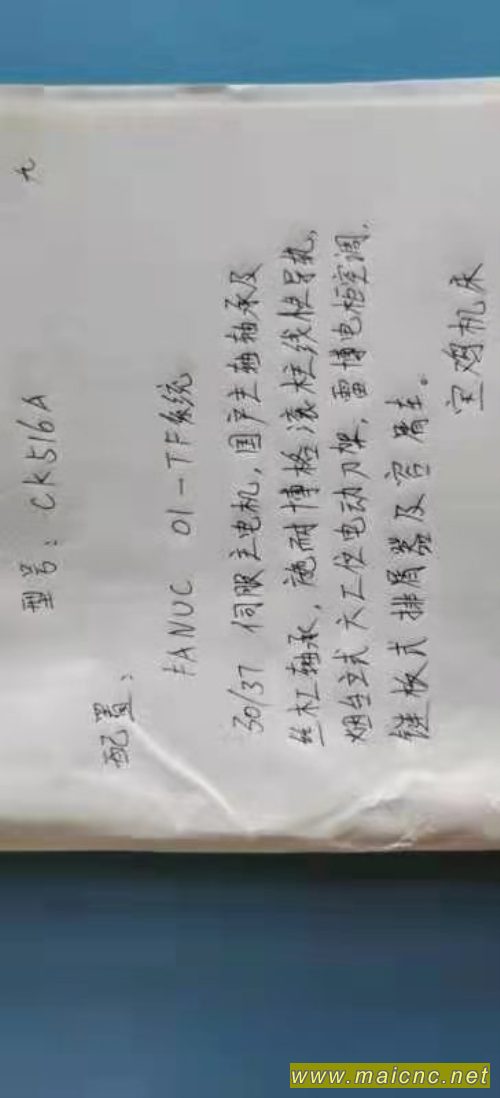 九
型号：CK516A
配置：
FANUC 01-TF系统
30/37 伺服主电机，国产主轴轴承及
丝杠轴承，施耐博格滚柱线性导轨，
烟台立式六工位电动刀架，雷博电柜空调，
链板式排屑器及容屑车。
宝鸡机床
www.maicnc.net